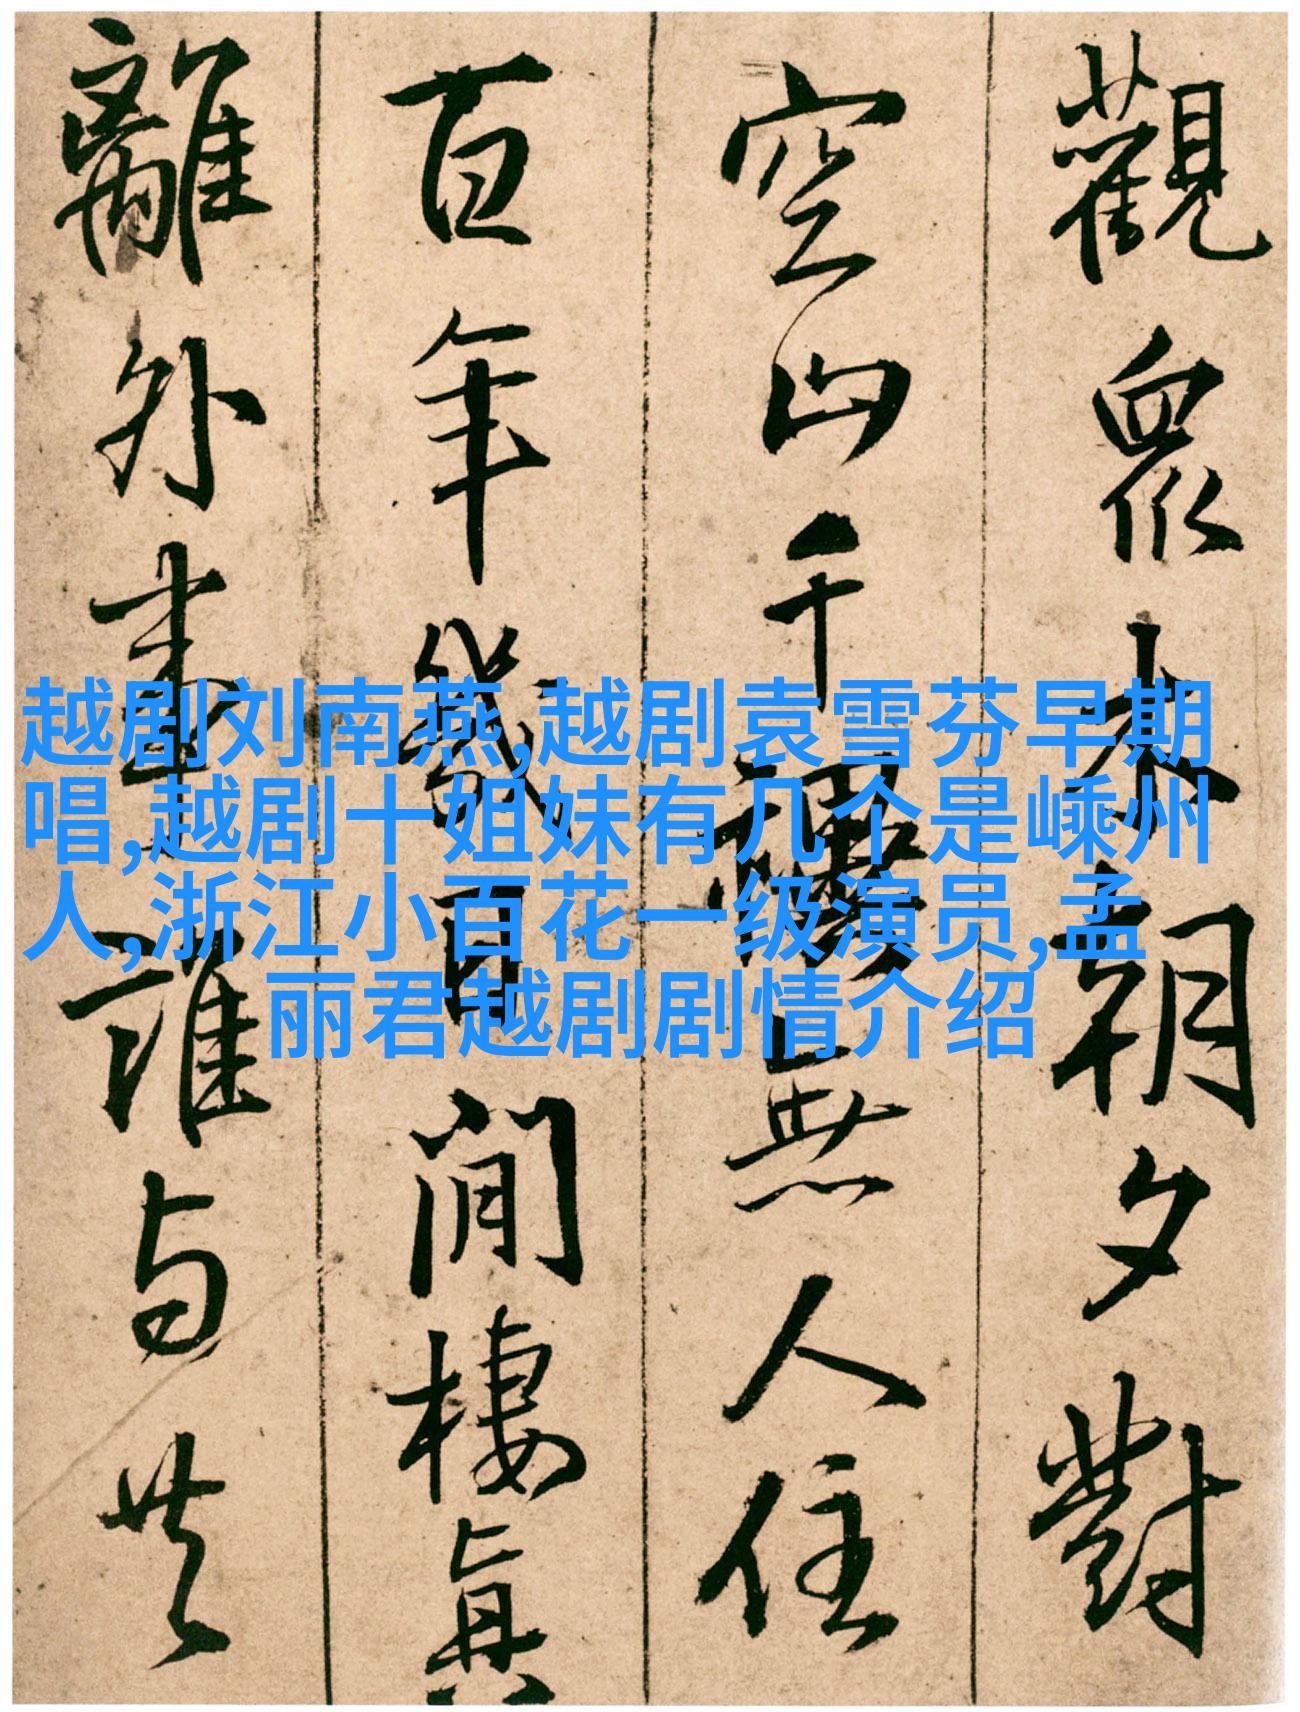 觀眾木朝夕對
空山千無人住
百年幾閒棲真
離外誰与共
越剧刘南燕,越剧袁雪芬早期
唱,越剧十姐妹有几个是嵊州
人,浙江小百花一级演员,孟
丽君越剧剧情介绍